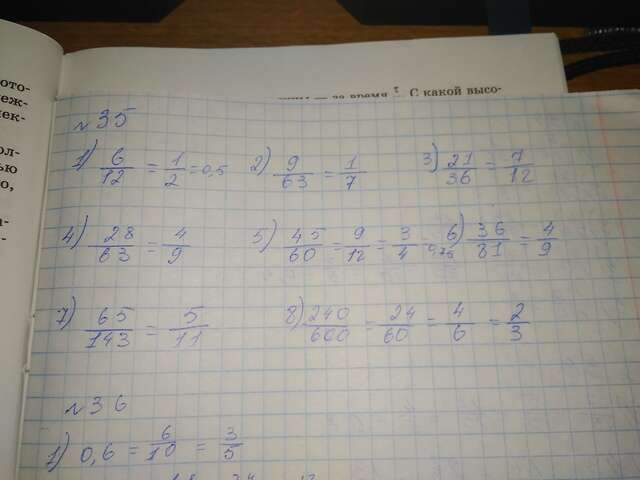 ото-
еж-
ек-
ол-
ью
о,
а-
за время τ. С какой высо-
№35
1) 6/12 = 1/2 = 0,5 2) 9/63 = 1/7 3) 21/36 = 7/12
4) 28/63 = 4/9 5) 45/60 = 9/12 = 3/4 = 0,75 6) 36/81 = 4/9
7) 65/143 = 5/11 8) 240/600 = 24/60 = 4/6 = 2/3
№36
1) 0,6 = 6/10 = 3/5